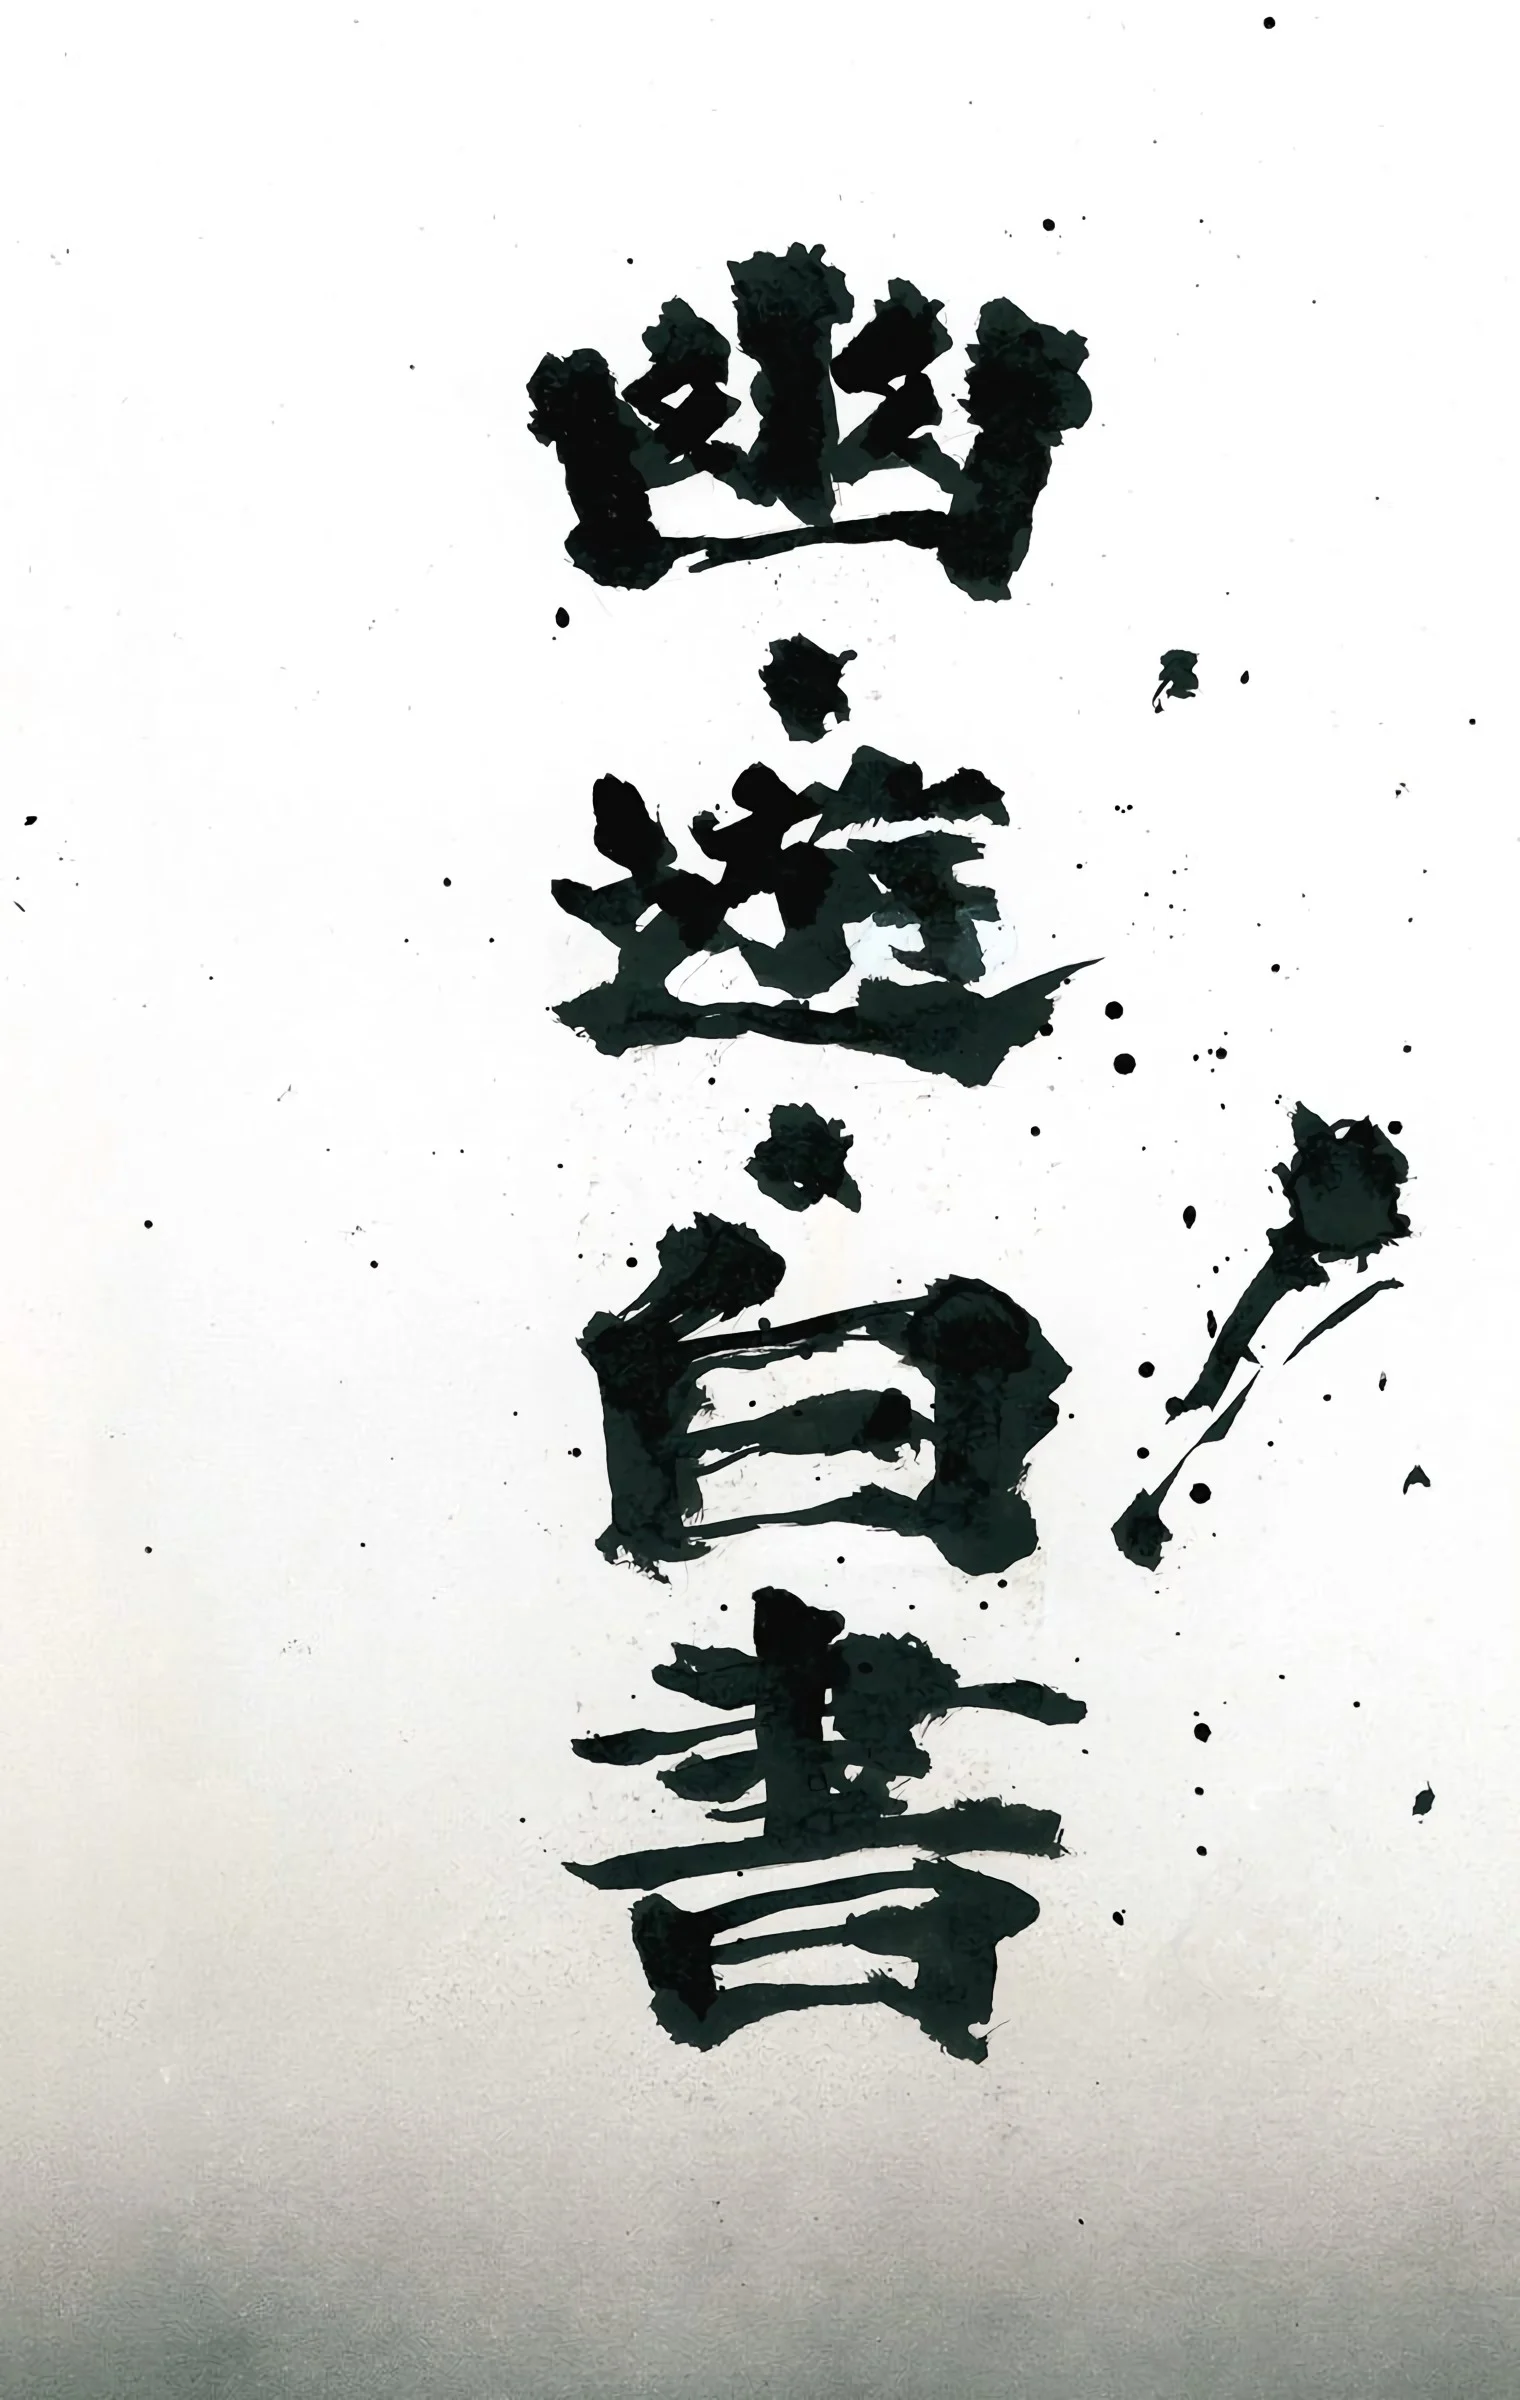 幽・遊・白書